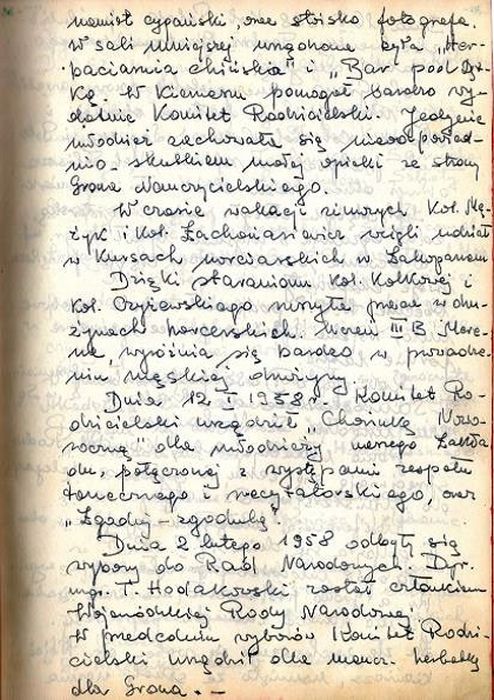 namiot cygański, oraz stoisko fotografa.
W sali mniejszej urządzona była „Her-
baciarnia chińska" i „Bar pod
Kiermaszu pomagał bardzo wy-
datnie Komitet Rodzicielski. Jedynie
młodzież zachowała się nieodpowied-
nio – skutkiem małej opieki ze strony
Grona Nauczycielskiego.
W czasie wakacji zimowych Kol. Mę-
żyk i Kol. Zachariasiewicz wzięli udział
w Kursach narciarskich w Zakopanem
Dzięki staraniom Kol. Kołkowej i
Kol. Czyżewskiego ruszyła praca w dru-
żynach harcerskich. Uczeń III B More-
nie, wyróżnia się bardzo w prowadze-
niu męskiej drużyny.
Dnia 12 I 1958 r. Komitet Ro-
dzicielski urządził „Choinkę Nowo-
roczną" dla młodzieży naszego Zakła
du, połączoną z występami zespołu
tanecznego i recytatorskiego, oraz
„Zgaduj – zgadulę".
Dnia 2 lutego 1958 odbyły się
wybory do Rad Narodowych. Dyr.
mgr. T. Hodakowski został członkiem
Wojewódzkiej Rady Narodowej
W przedednie wyborów Komitet Rodzi-
cielski urządził dla naucz. herbatkę
dla Grona. –